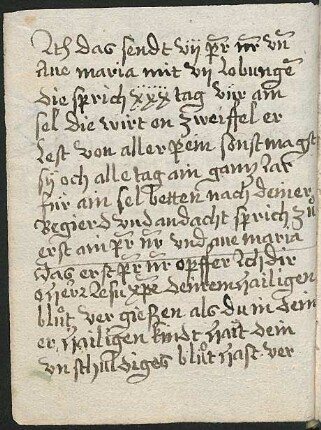 Ich das sendt vij pr nr vn
Aue maria mit vij lobunge
die sprich xxx tag vir am
sel die wirt on zweiffel er
lest von aller pein sonst magst
sÿ och alle tag ain gantz iar
fur ain sel betten nach deiner
Begierd vnd andacht sprich zů
erst ain pr nr vnd aue maria
das erst pr nr opffer Ich dir
o herr Iesu xpe deinem hailigen
blůt ver gießen als du in dem
er hailigen kindthait dem
vnschuldiges blůt hast ver